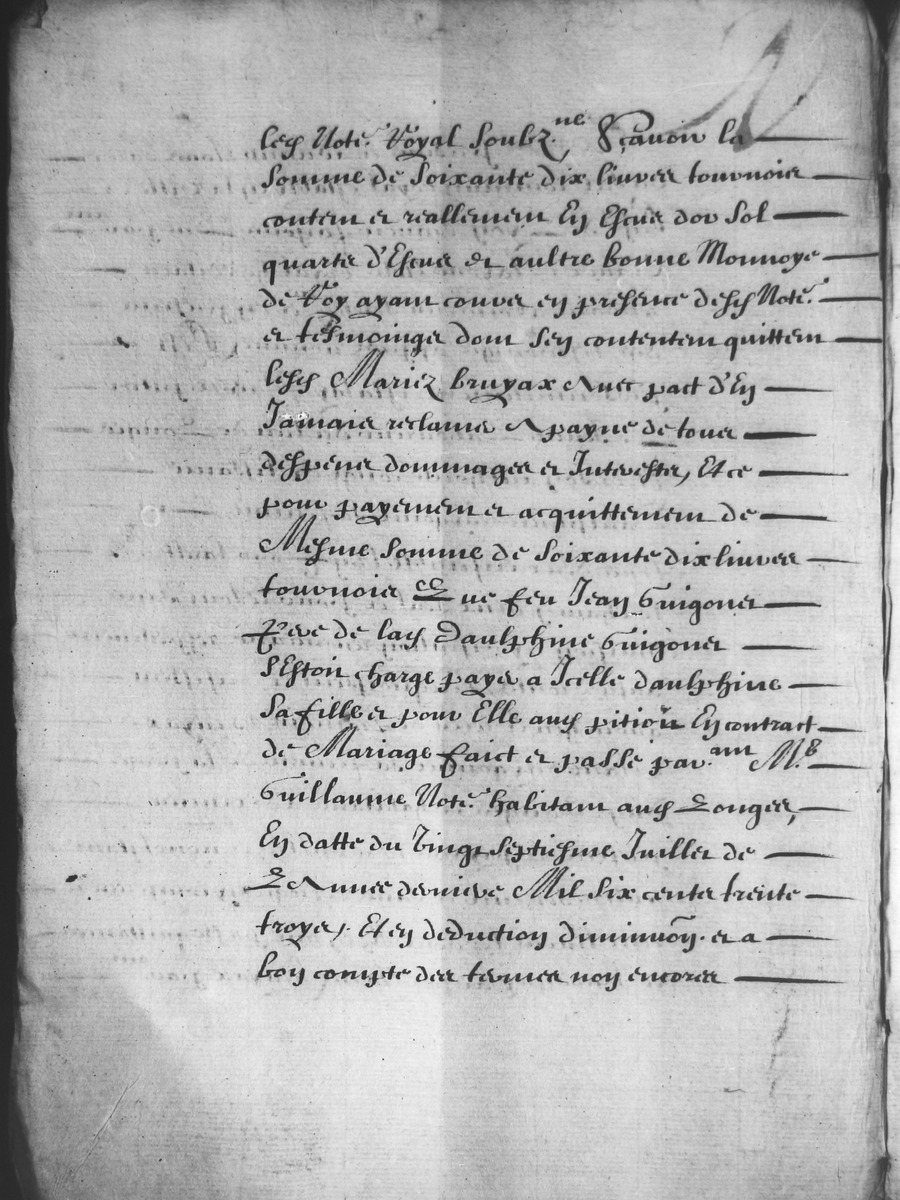 lesd Note. Royal soubz.ne Sçavoir la
somme de soixante dix livres tournois
content et reallement En Escus dor sol
quarts d'Escus et aultre bonne Monnoye
de Roy ayant cours en presence desd Note.
et tesmoings dont sen contentent quittent
lesd Mariez bruyax Avec pact d'En
Jamais reclamer A payne de tous
despens dommages et Interests, Et ce
pour payement et acquittement de
Mesme somme de soixante dix livres
tournois Que feu Jean Guigonet
Pere de lad Daulphine Guigonet
s'Estoit charge payer a Icelle daulphine
sa fille et pour Elle aud pition En contract
de Mariage faict et passé par.ant M.e
Guillaume Note. habitant aud Longes,
En datte du Vingt septiesme Juillet de
L'Annee derniere Mil six cents trente
troys, Et en deduction diminuõn. et a
bon compte des termes non encores